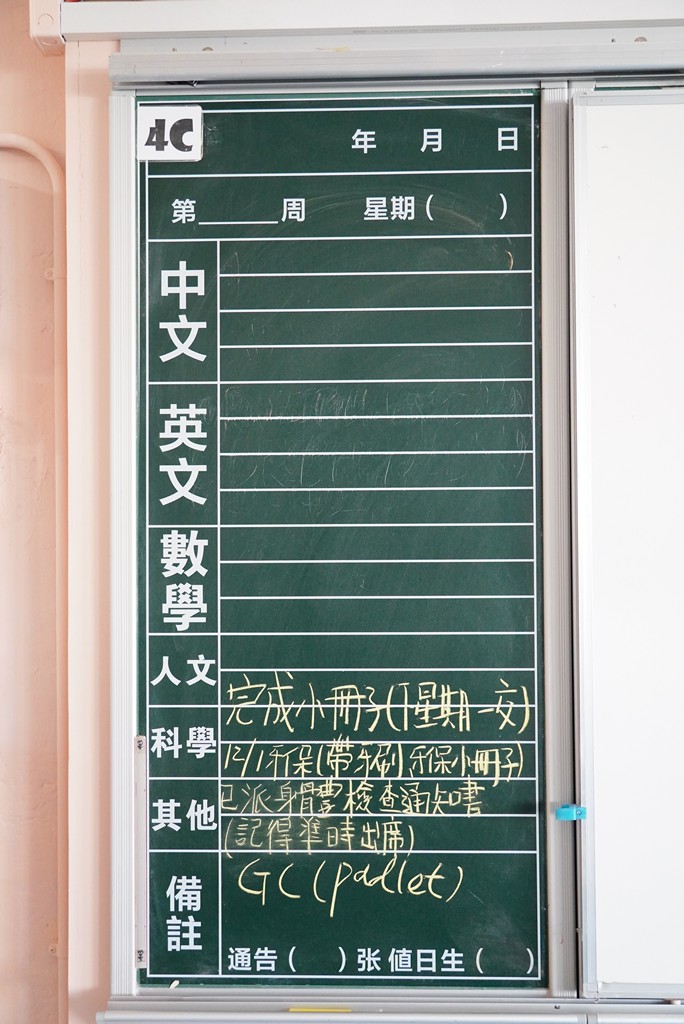 4C
年 月 日
第______周 星期( )
中文
英文
數學
人文
完成小冊子(下星期一交)
科學
12/1牙保(帶牙刷,牙保小冊子)
其他
已派身體檢查通知書
(記得準時出席)
備註
GC(padlet)
通告( )张 值日生( )